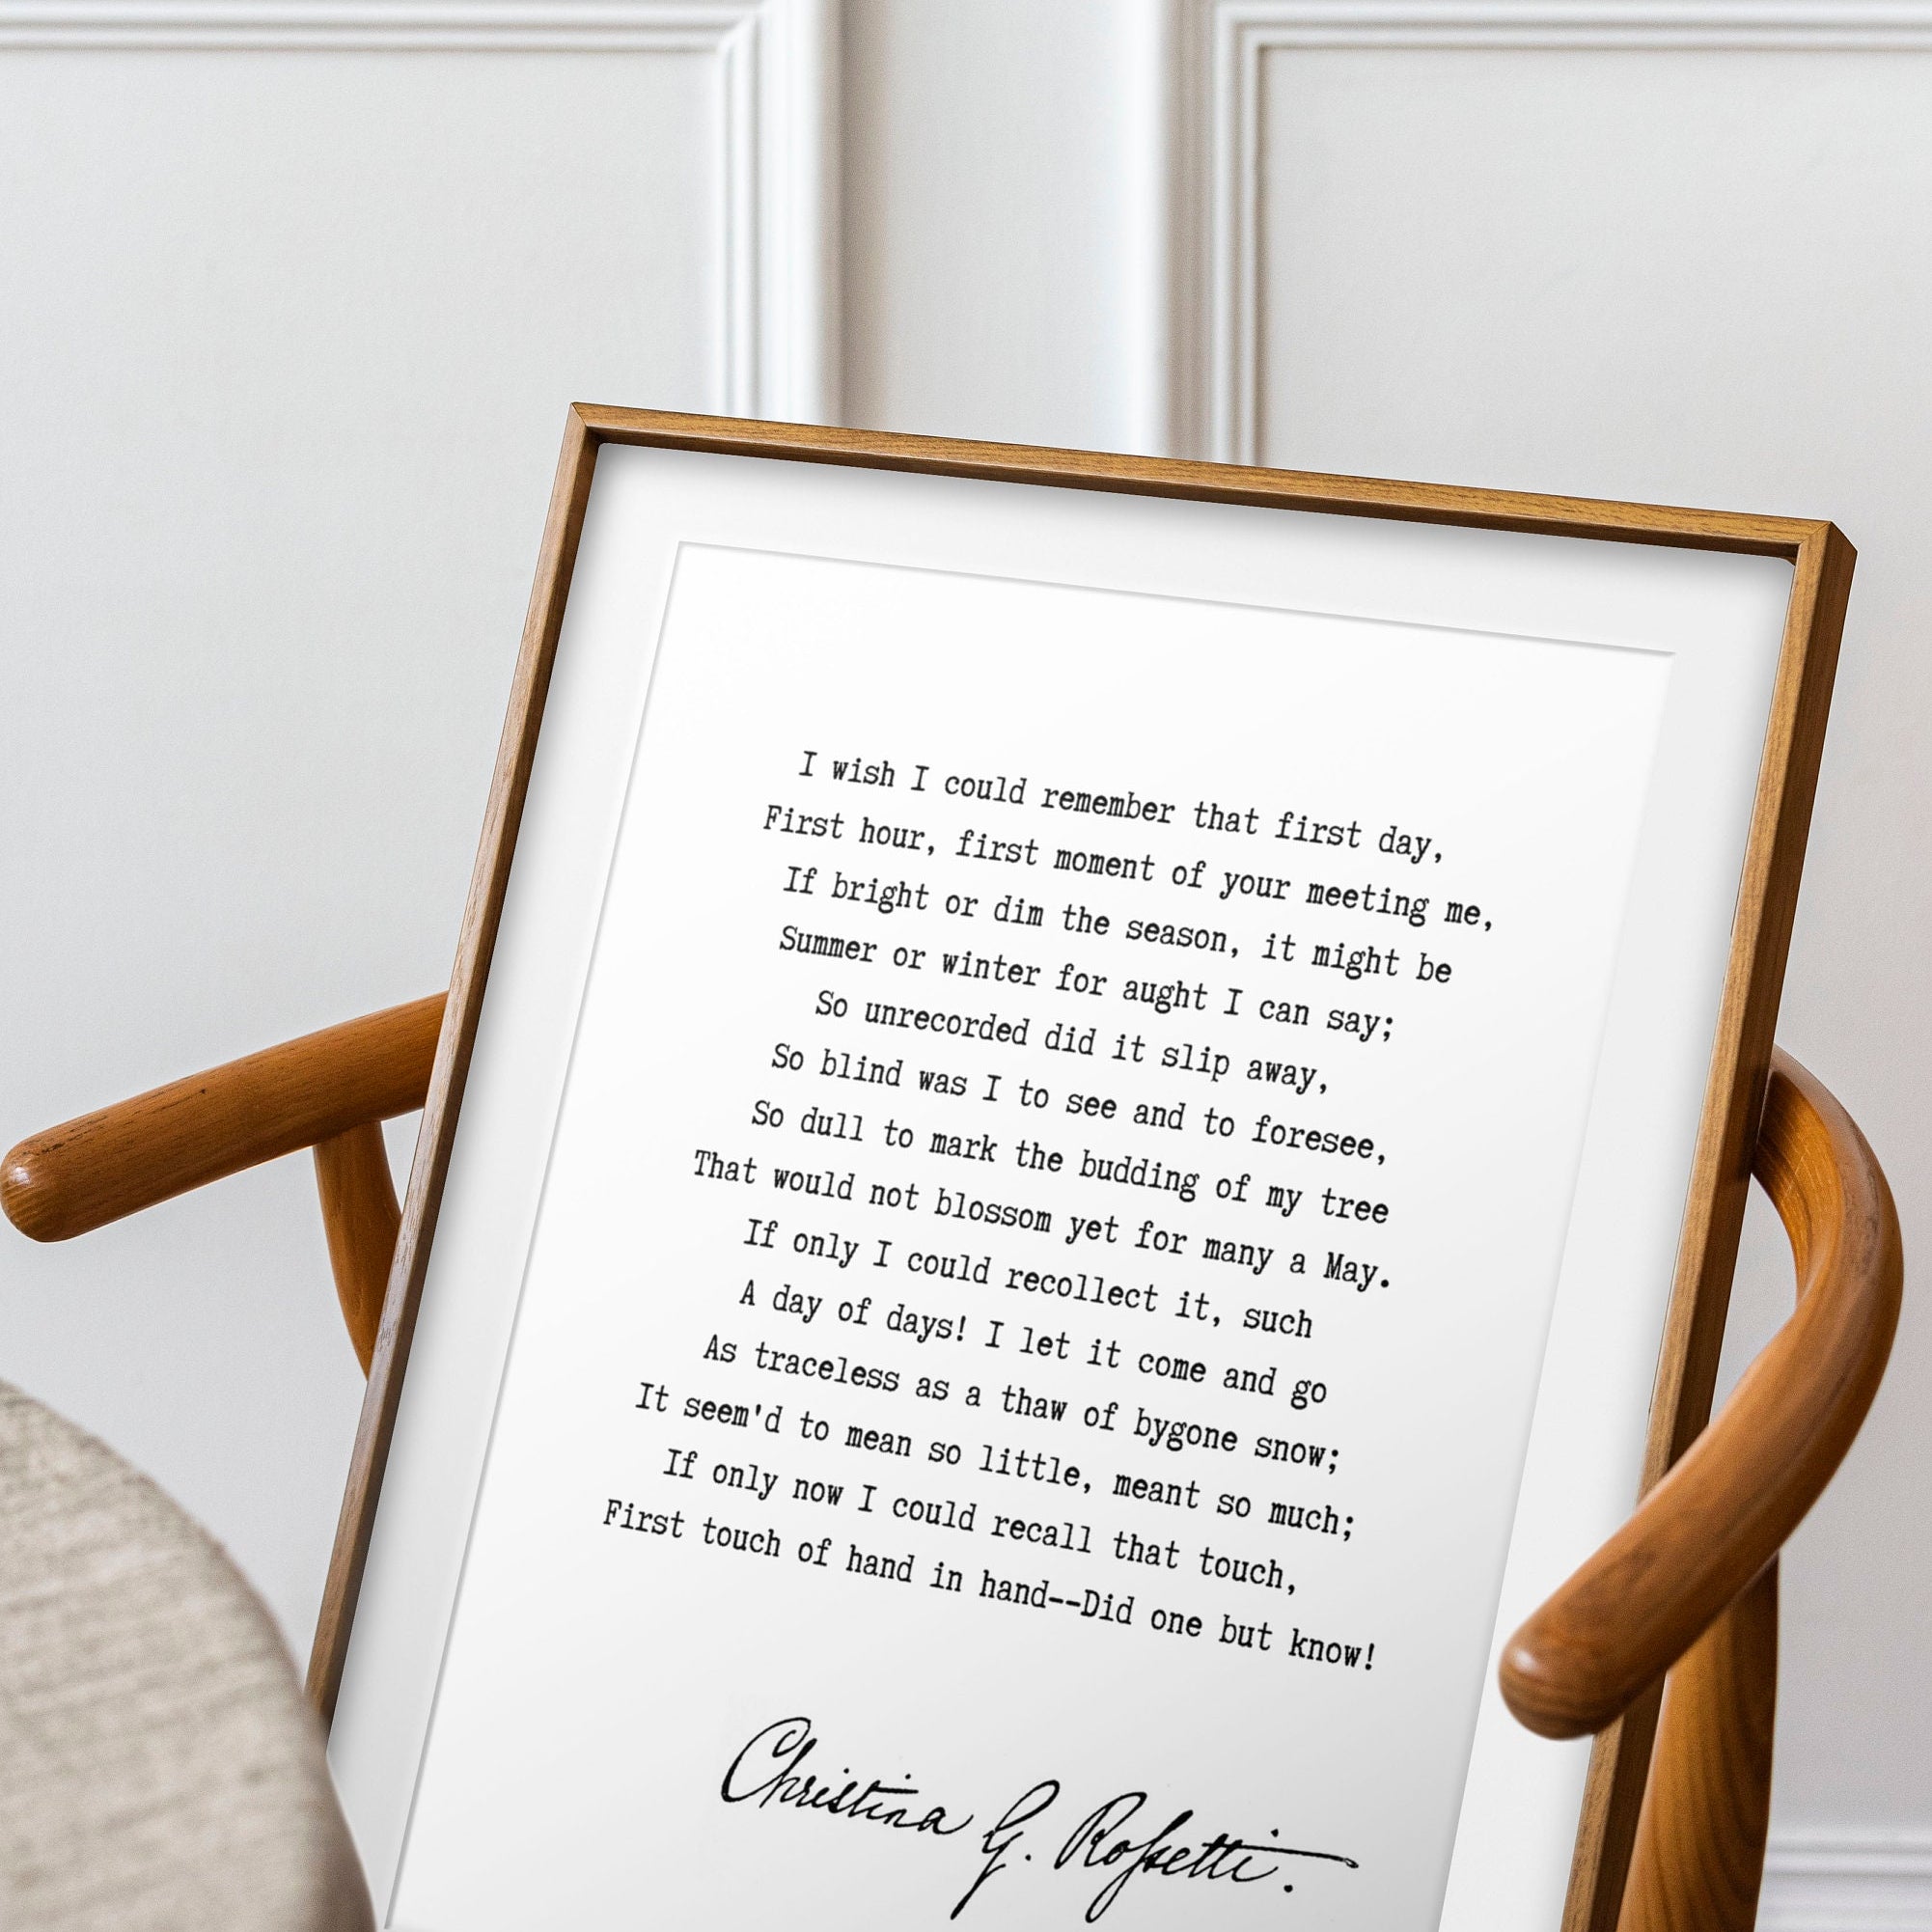 I wish I could remember that first day,
First hour, first moment of your meeting me,
If bright or dim the season, it might be
Summer or winter for aught I can say;
So unrecorded did it slip away,
So blind was I to see and to foresee,
So dull to mark the budding of my tree
That would not blossom yet for many a May.
If only I could recollect it, such
A day of days! I let it come and go
As traceless as a thaw of bygone snow;
It seem'd to mean so little, meant so much;
If only now I could recall that touch,
First touch of hand in hand--Did one but know!
Christina G. Rossetti.